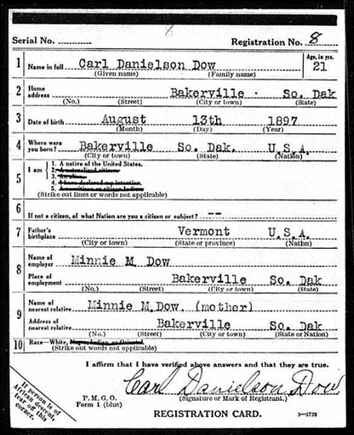 8
Serial No. Registration No. 8
1 Name in full Carl Danielson Dow Age, in yrs. 21
(Given name) (Family name)
2 Home address Bakerville - So. Dak
(No.) (Street) (City or town) (State)
3 Date of birth August 13th 1897
(Month) (Day) (Year)
4 Where were you born? Bakerville So. Dak. U.S.A.
(City or town) (State) (Nation)
5 I am
1. A native of the United States.
2. A naturalized citizen.
3. An alien.
4. I have declared my intention.
5. 
(Strike out lines or words not applicable)
6
If not a citizen, of what Nation are you a citizen or subject? --
7 Father's birthplace Vermont U.S.A.
(City or town) (State or province) (Nation)
8 Name of employer Minnie M Dow
Place of employment Bakerville So. Dak
(No.) (Street) (City or town) (State)
9 Name of nearest relative Minnie M.Dow. (mother)
Address of nearest relative Bakerville So. Dak
(No.) (Street) (City or town) (State)
10 Race—White,
(Strike out words not applicable)
I affirm that I have verified above answers and that they are true.
Carl Danielson Dow
P.M.G.O. (Signature or Mark of Registrant.)
Form 1 (blue)
REGISTRATION CARD. 3—5739
If person is of
African descent,
tear off this
corner.